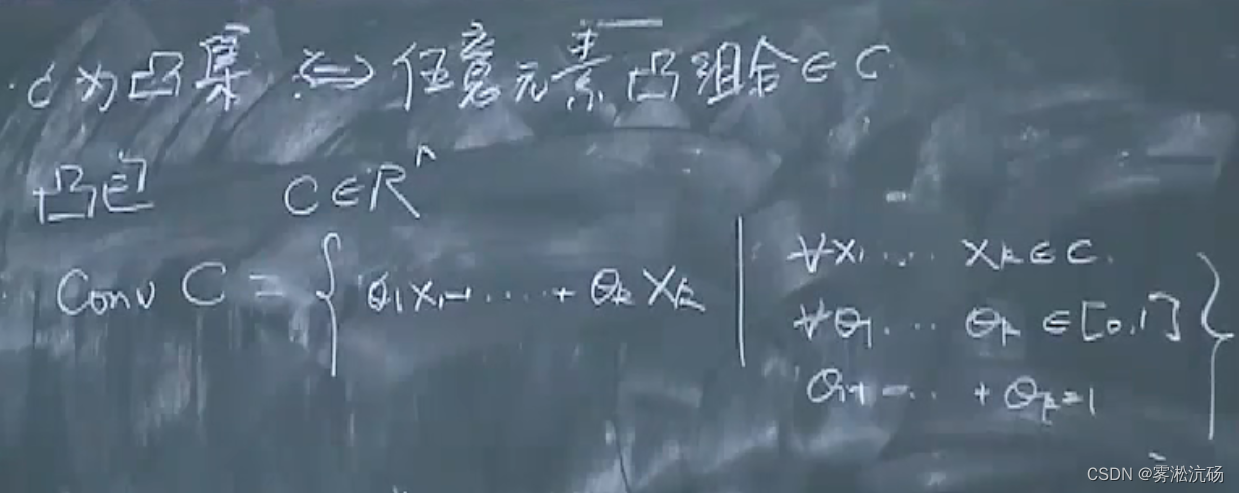 C为凸集 ⇔ 任意元素凸组合∈C
凸包 C∈Rⁿ
Conv C = { θ₁x₁+····+ θₖXₖ | ∀x₁···· Xₖ∈C.
∀θ₁···· θₖ∈[0,1] }
θ₁+···· + θₖ=1
CSDN @雾淞沆砀